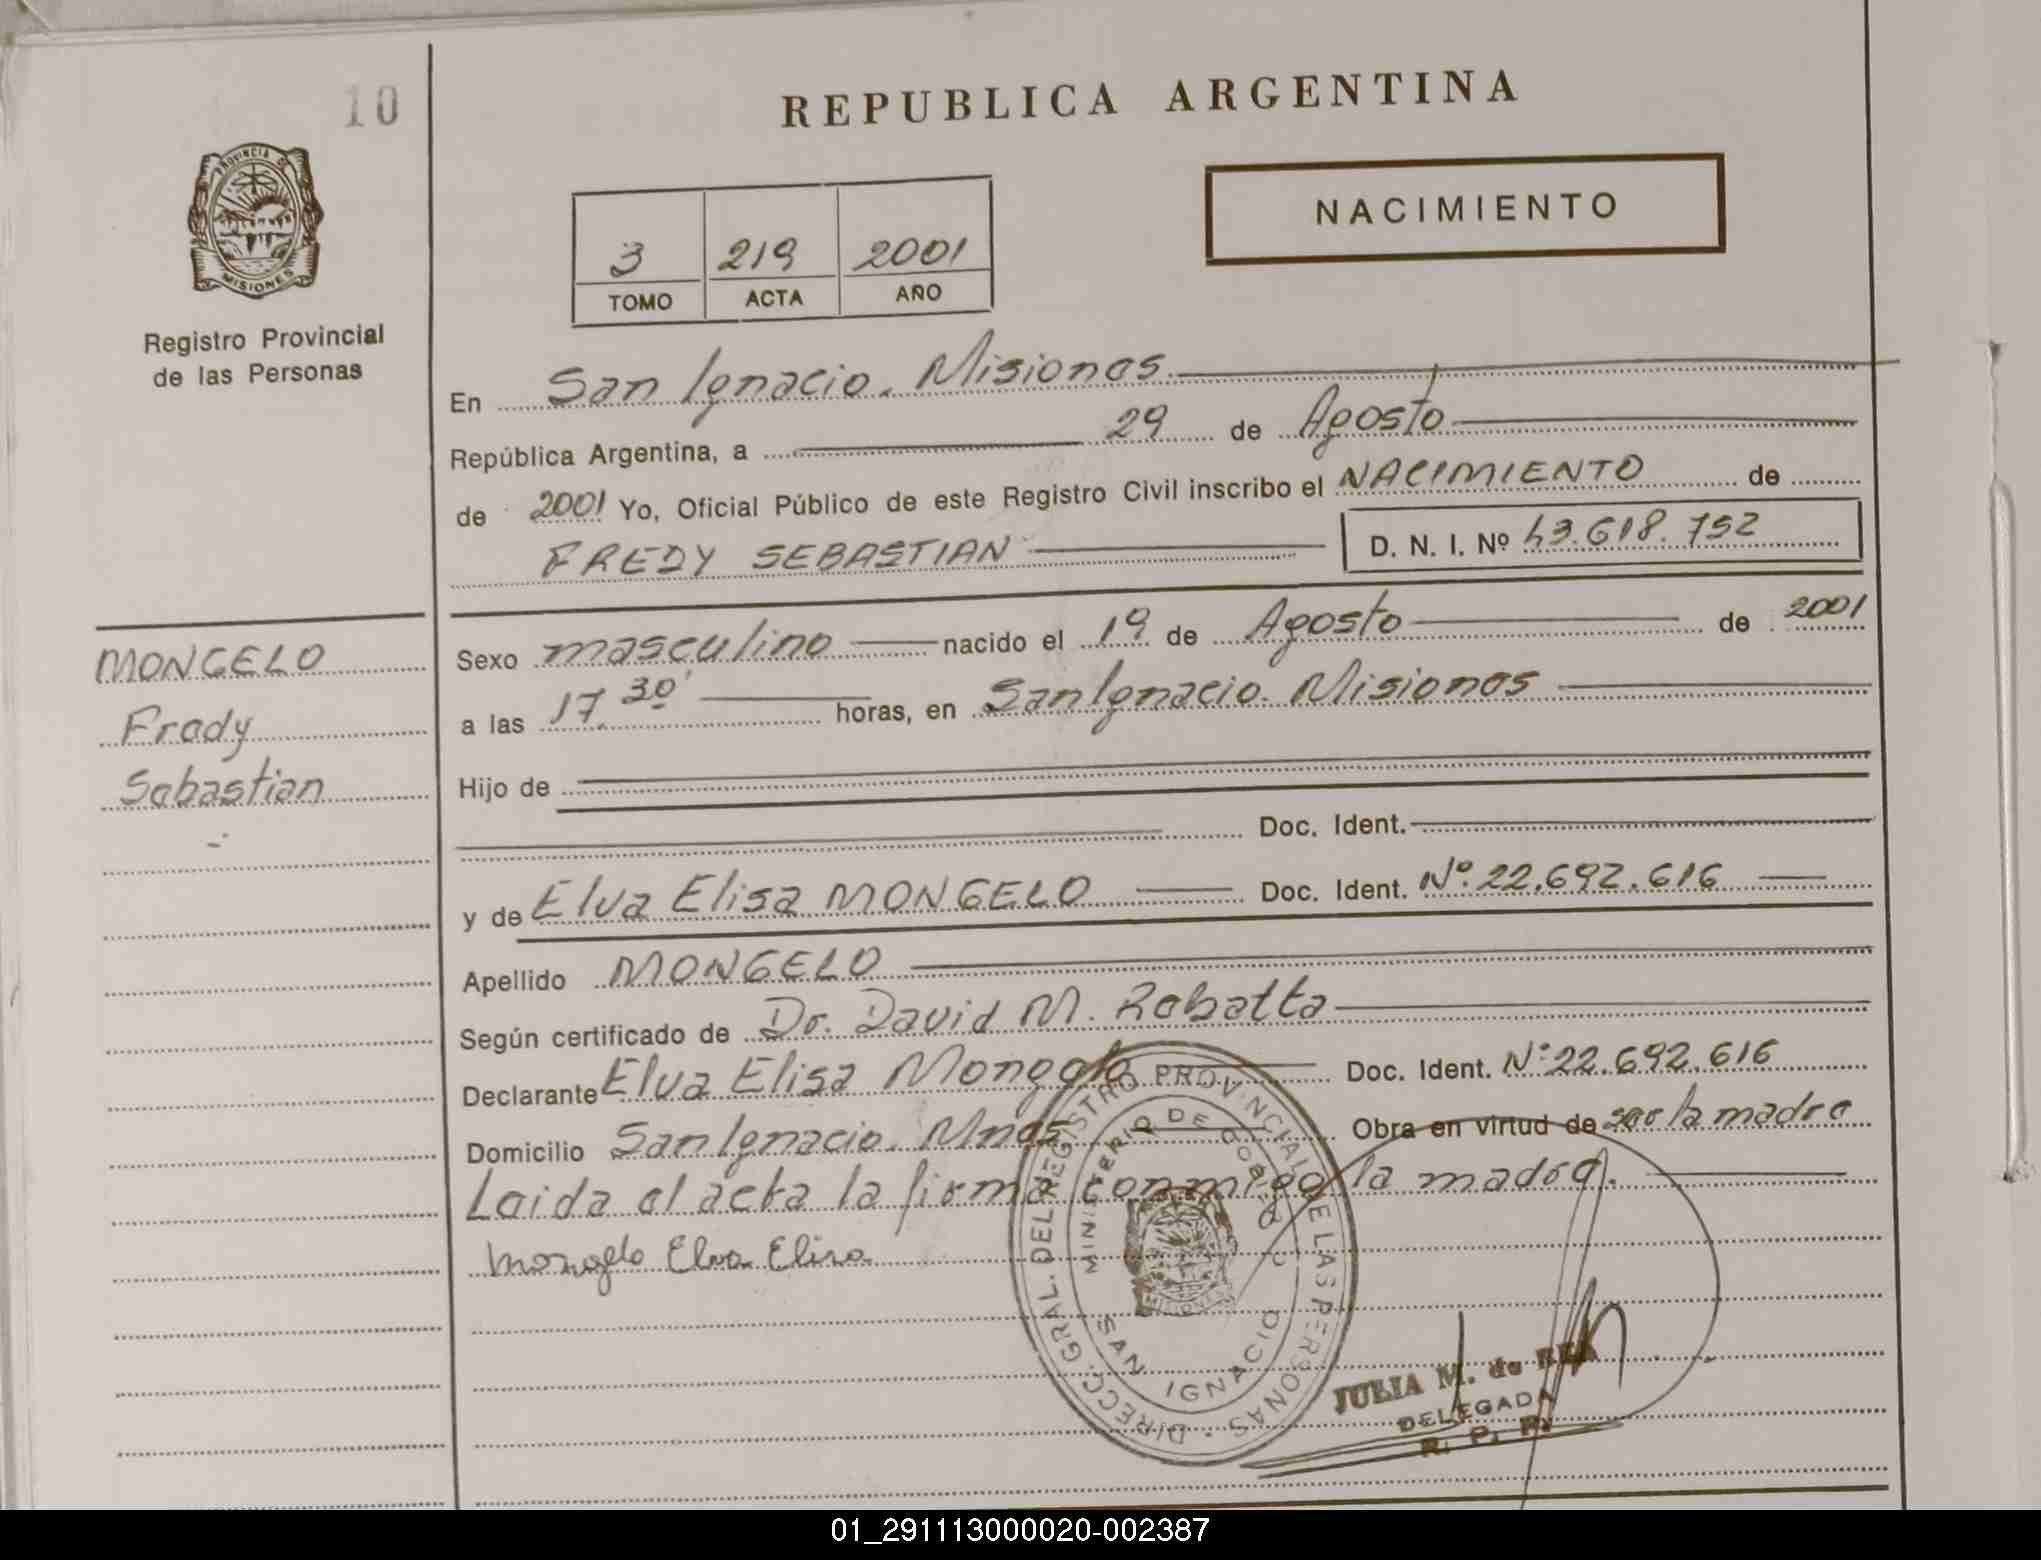 10
REPUBLICA ARGENTINA
PROVINCIA DE
MISIONES
Registro Provincial
de las Personas
NACIMIENTO
3 219 2001
TOMO ACTA AÑO
En San Ignacio. Misiones.
República Argentina, a 29 de Agosto
de 2001 Yo, Oficial Público de este Registro Civil inscribo el NACIMIENTO de
FREDY SEBASTIAN D. N. I. Nº 43.618.752
MONGELO
Fredy
Sebastian
Sexo masculino nacido el 19 de Agosto de 2001
a las 17.30' horas, en San Ignacio. Misiones
Hijo de
Doc. Ident.
y de Elva Elisa MONGELO Doc. Ident. Nº.22.692.616
Apellido MONGELO
Según certificado de Dr. David M. Rebatta
Declarante Elva Elisa Mongelo Doc. Ident. Nº22.692.616
Domicilio San Ignacio. Mnes Obra en virtud de ser la madre
Leida el acta la firma conmigo la madre.
Mongelo Elva Elisa
DIRECC. GRAL. DEL REGISTRO PROVINCIAL DE LAS PERSONAS
MINISTERIO DE
SAN IGNACIO
MISIONES
JULIA M. de REA
DELEGADA
R. P. P.
01_291113000020-002387